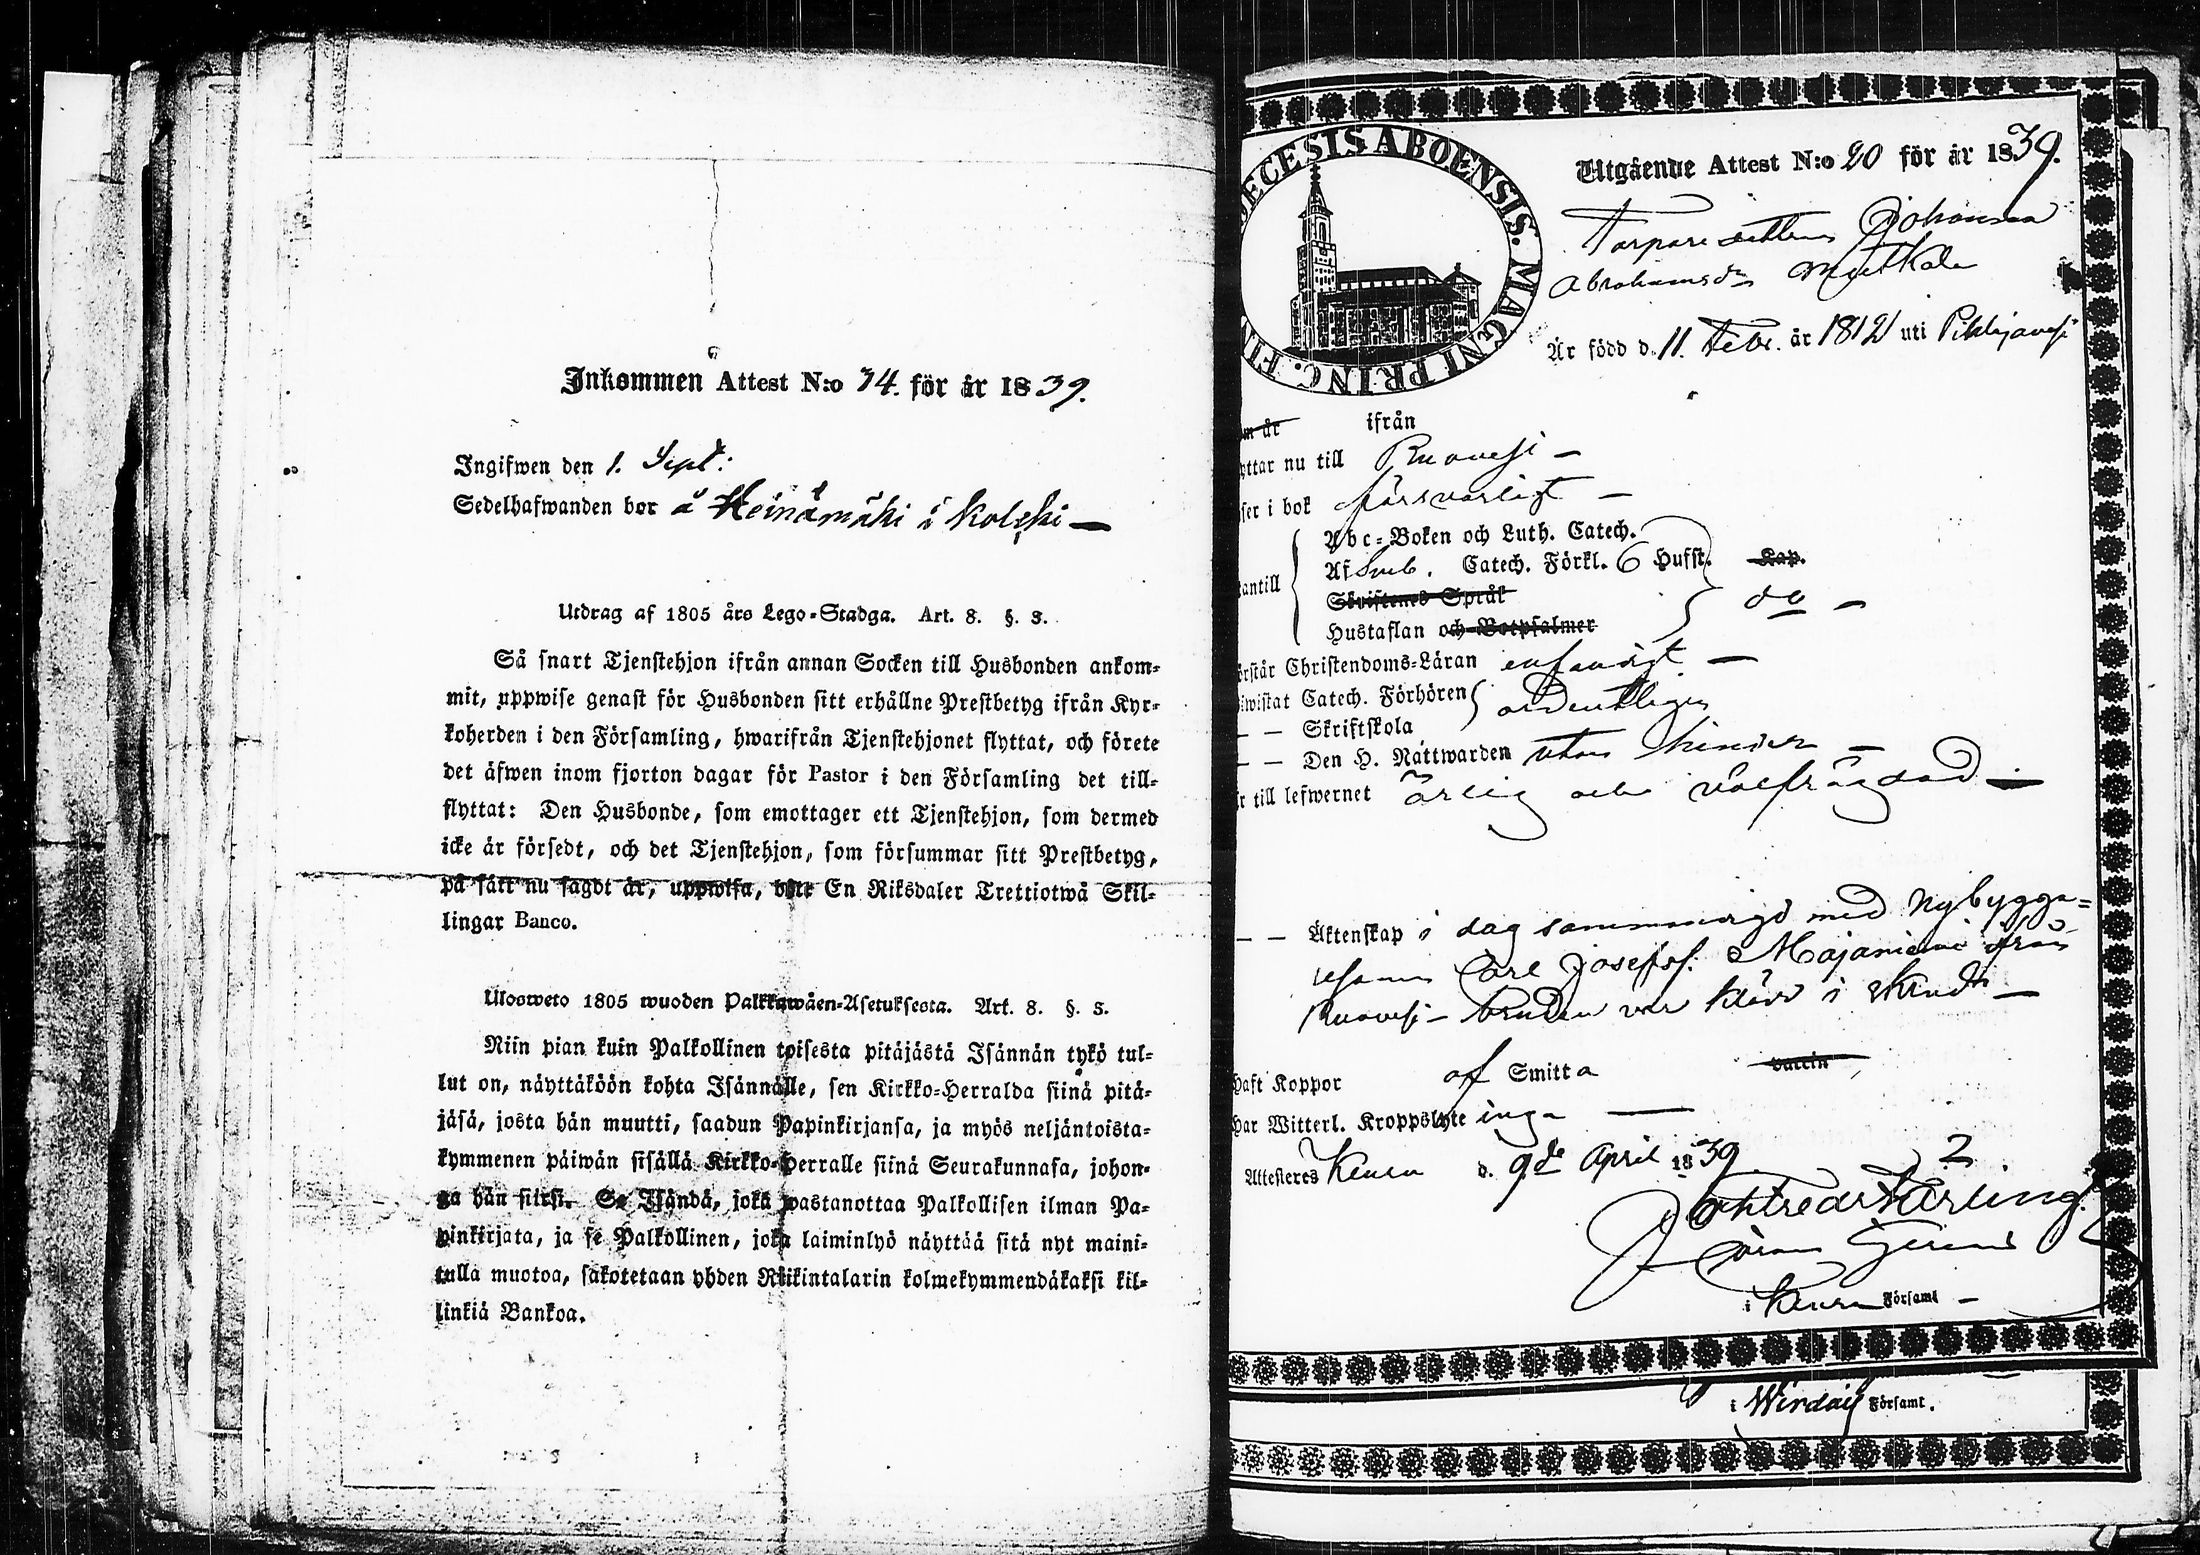 Inkommen Attest N:o 74. för år 1839.
Ingifwen den 1. Sept:
Sedelhafwanden bor å Heinämäki i Kolcki —
Utdrag af 1805 års Lego-Stadga. Art. 8. §. 3.
Så snart Tjenstehjon ifrån annan Socken till Husbonden ankom-
mit, uppwise genast för Husbonden sitt erhållne Prestbetyg ifrån Kyr-
koherden i den Församling, hwarifrån Tjenstehjonet flyttat, och förete
det äfwen inom fjorton dagar för Pastor i den Församling det till-
flyttat: Den Husbonde, som emottager ett Tjenstehjon, som dermed
icke är försedt, och det Tjenstehjon, som försummar sitt Prestbetyg,
på sätt nu sagdt är, uppwisa, böte En Riksdaler Trettiotwå Skil-
lingar Banco.
Ulosweto 1805 wuoden Palkkawäen-Asetuksesta. Art. 8. §. 3.
Niin pian kuin Palkollinen toisesta pitäjästä Isännän tykö tul-
lut on, näyttäköön kohta Isännälle, sen Kirkko-Herralda siinä pitä-
jäsä, josta hän muutti, saadun Papinkirjansa, ja myös neljäntoista-
kymmenen päiwän sisällä Kirkko-Herralle siinä Seurakunnasa, johon-
ga hän siirsi. Se Isändä, joka wastanottaa Palkollisen ilman Pa-
pinkirjata, ja se Palkollinen, joka laiminlyö näyttää sitä nyt maini-
tulla muotoa, sakotetaan yhden Riikintalarin kolmekymmendäkaksi kil-
linkiä Bankoa.
DECESIS ABOENSIS. MAGNI PRINC. FIN
Utgående Attest N:o 20 för år 1839.
Torpare dottern Johanna
Abrahamsdr Mutkala
Är född d. 11. Febr. år 1812 uti Pihlajavesi
om år ifrån
yttar nu till Ruovesi —
ser i bok försvarligt —
Abc-Boken och Luth. Catech.
Af Sveb. Catech. Förkl. 6 Hufst. Kap.
antill Skriftenes Språk do —
Hustaflan och Botpsalmer
örstår Christendoms-Läran enfaldigt —
iwistat Catech. Förhören ordentligen
— — Skriftskola
— — Den H. Nattwarden utan hinder —
r till lefwernet ärlig och välfrägdad —
— — Äktenskap i dag sammanvigd med Nybygga-
resonen Carl Josefss. Majaniemi ifrån
Ruovesi — bruden var klädd i skrud —
haft Koppor af Smitta vaccin
har Witterl. Kroppslyte inga —
Attesteras Keuru d. 9de April 1839
i Keuru Församl —
i Wirdois Församl.